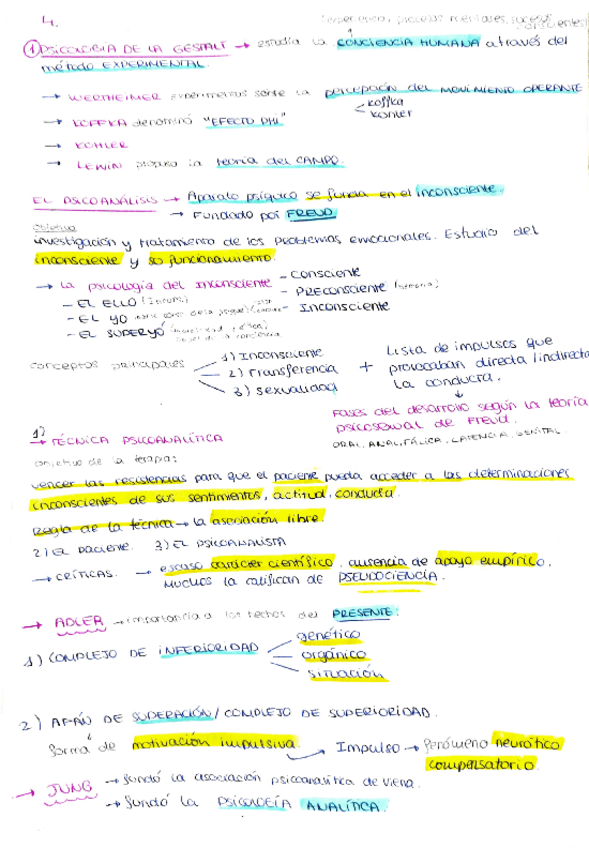 4.
percepción, procesos mentales, sucesos conscientes
① PSICOLOGIA DE LA GESTALT → estudia la CONCIENCIA HUMANA a través del
método EXPERIMENTAL.
→ WERTHEIMER experimentos sobre la percepción del MOVIMIENTO OPERANTE
→ KOFFKA denominó "EFECTO PHI"
Koffka
Kohler
→ KOHLER
→ LEWIN propuso la teoría del CAMPO.
EL PSICOANÁLISIS → Aparato psíquico se funda en el inconsciente.
→ Fundado por FREUD
Objetivo
investigación y tratamiento de los problemas emocionales. Estudio del
inconsciente y su funcionamiento.
→ La psicología del INConsciente - Consciente
- PREConsciente
- Inconsciente
- EL ELLO
- EL YO
- EL SUPERYÓ
conceptos principales
1) Inconsciente
2) Transferencia
3) Sexualidad
+ Lista de impulsos que
provocaban directa/indirecta
la conducta.
Fases del desarrollo según la teoría
psicosexual de Freud.
ORAL, ANAL, FÁLICA, LATENCIA, GENITAL.
1) → TÉCNICA PSICOANALÍTICA
objetivo de la terapia:
vencer las resistencias para que el paciente pueda acceder a las determinaciones
inconscientes de sus sentimientos, actitud, conducta.
Regla de la técnica → la asociación libre.
2) EL paciente. 3) EL PSICOANALISTA
→ CRÍTICAS. → escaso carácter científico, ausencia de apoyo empírico.
Muchos la califican de PSEUDOCIENCIA.
→ ADLER → importancia a los hechos del PRESENTE:
1) COMPLEJO DE INFERIORIDAD
genético
orgánico
situación
2) AFÁN DE SUPERACIÓN / COMPLEJO DE SUPERIORIDAD.
forma de motivación impulsiva. → Impulso → fenómeno neurótico
compensatorio.
→ JUNG → fundó la asociación psicoanalítica de Viena.
→ fundó la PSICOLOGÍA ANALÍTICA.